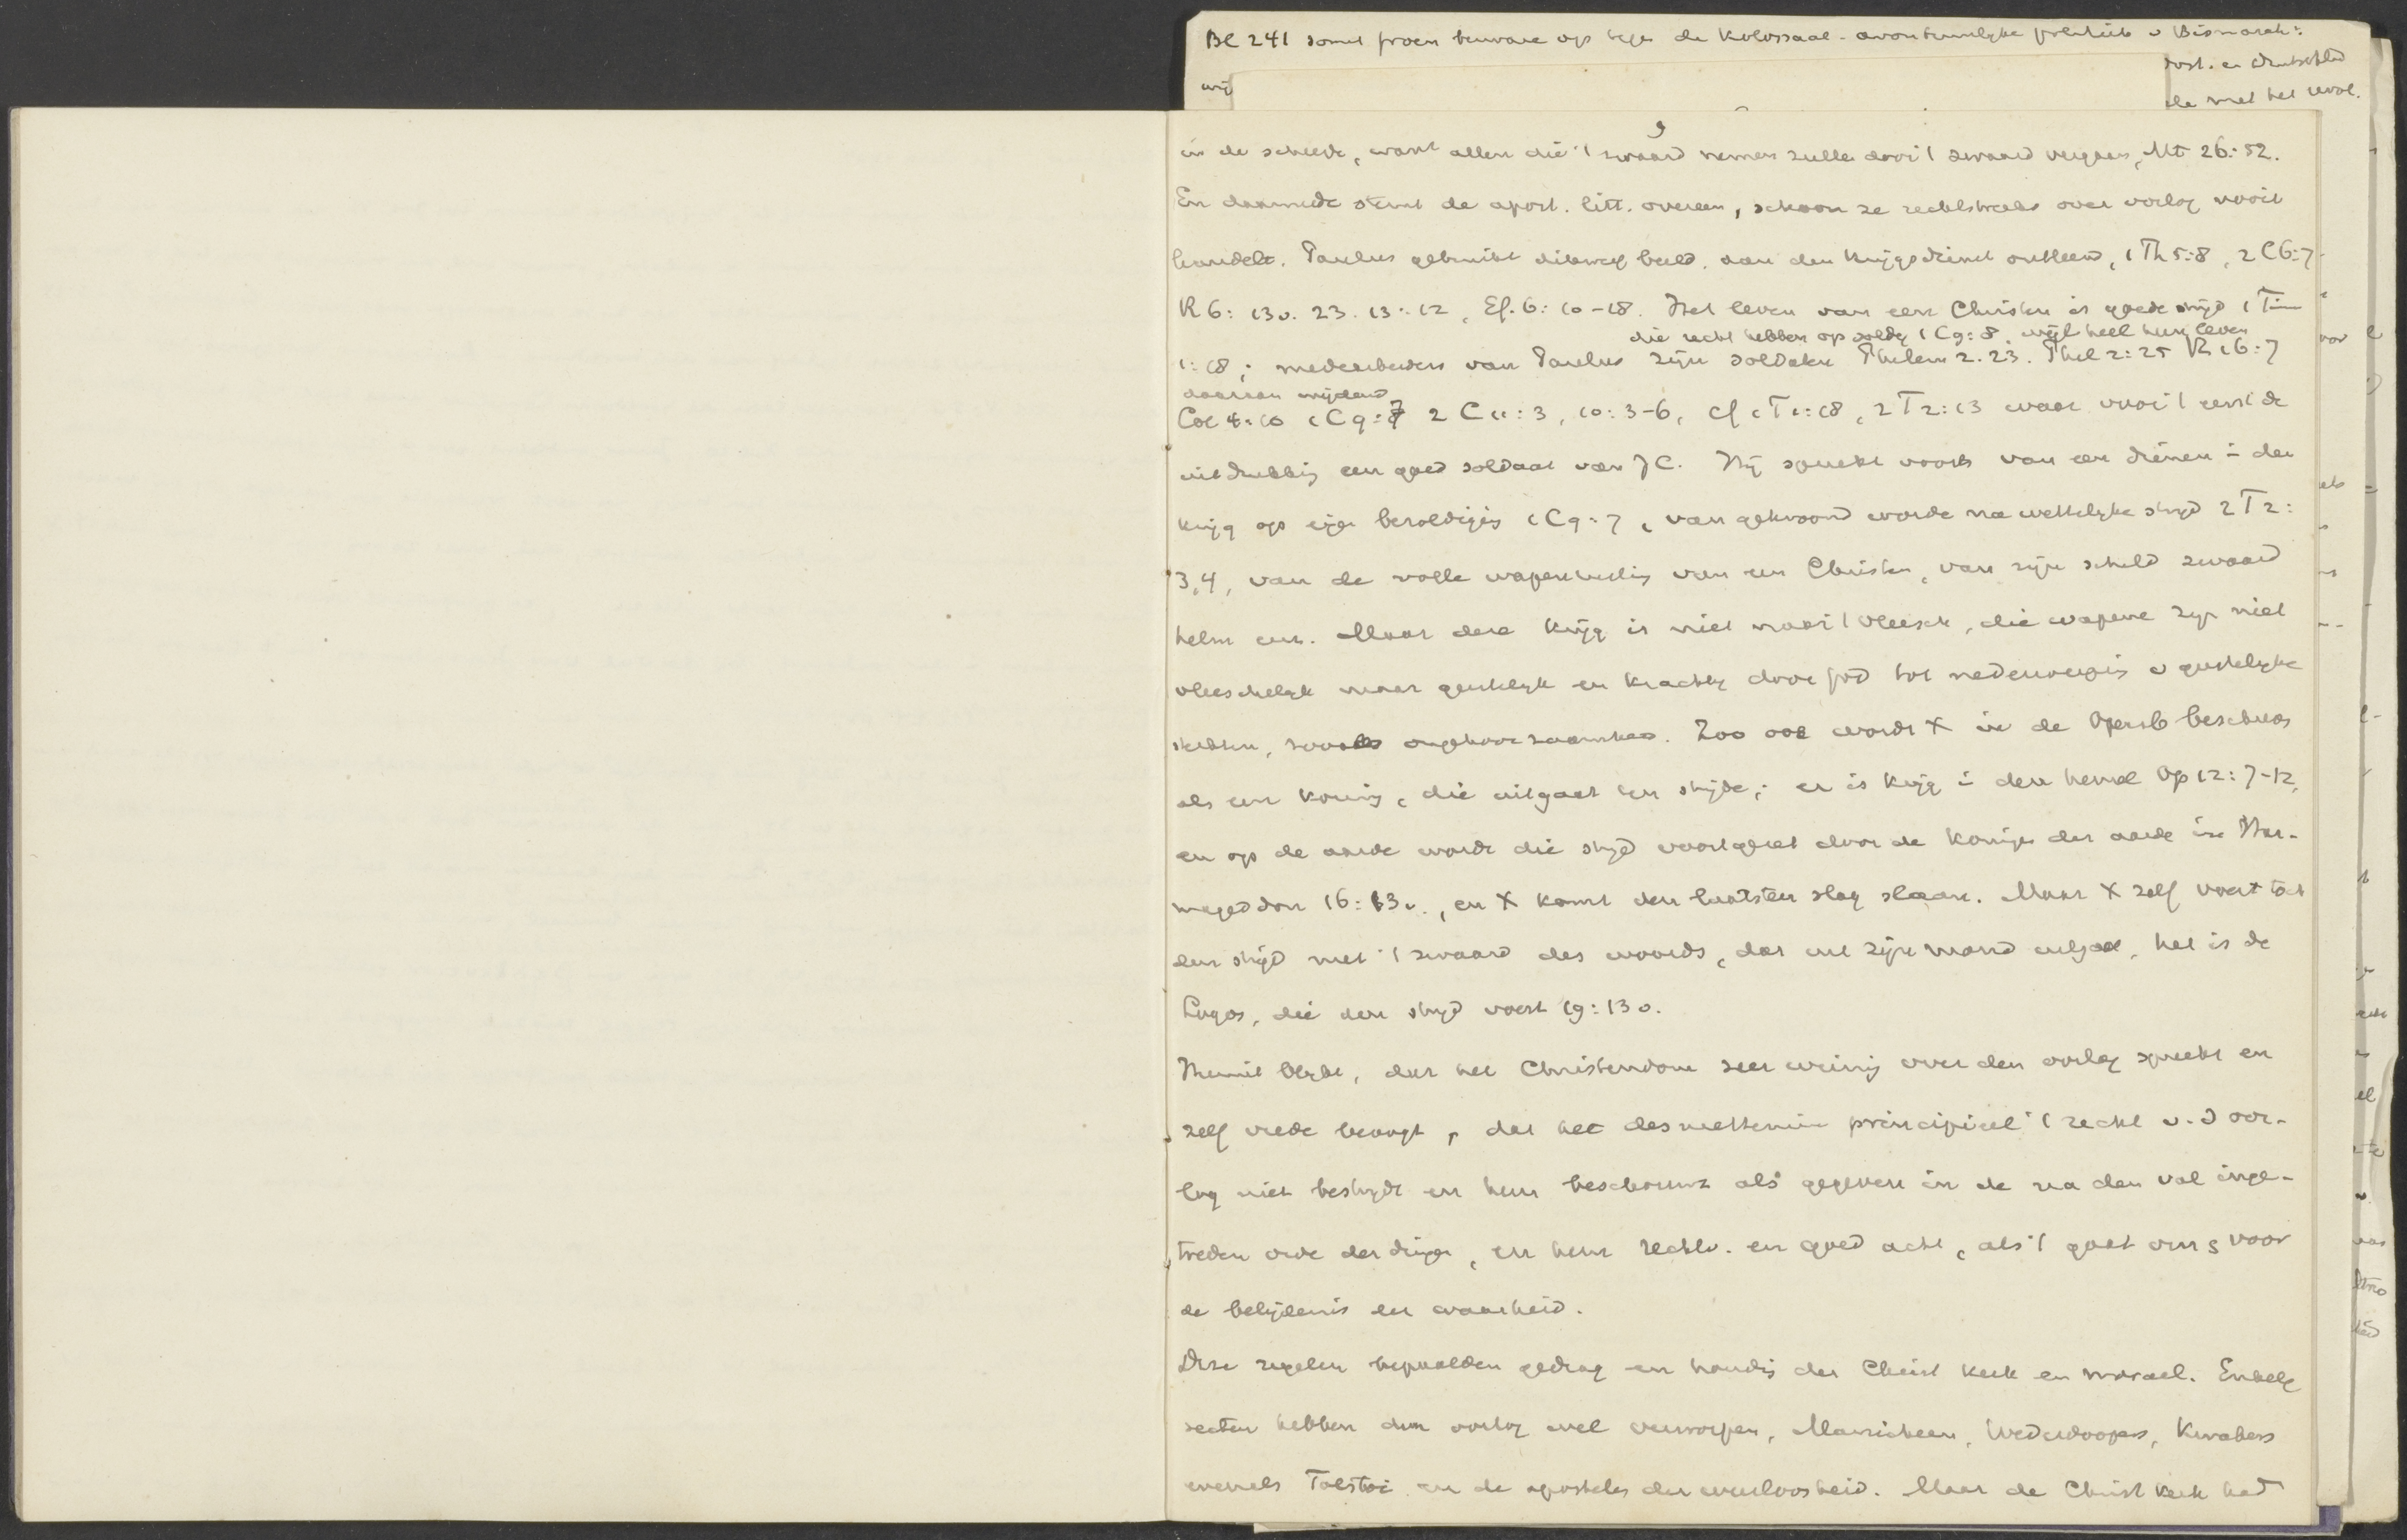 Bl 241 somt bezware op tegen de Kolossaal-avontuurlijke politiek v Bismarck:
Oost. en Duitschld
wij
de met het revol.
9
in de scheede, want allen die 't zwaard nemen zullen door 't zwaard vergaan, Mt 26:52.
En daarmede stemt de apost. litt. overeen, schoon ze rechtstreeks over oorlog nooit
handelt. Paulus gebruikt dikwerf beeld. aan den krijgsdienst ontleend, 1 Th 5:8, 2 C 6:7
R 6: 13v. 23. 13:12, Ef. 6: 10-18. Het leven van een Christen is goede strijd 1 Tim
die recht hebben op soldij 1 C 9:8. wijl heel hun leven
1:18; medearbeiders van Paulus zijn soldaten Philem 2. 23. Phil 2:25 R 16:7
daaraan wijdend
Col 4:10 1 C 9:7 2 C 11:3, 10:3-6, cf 1 T 1:18, 2 T 2:3 waar voor 't eerst de
uitdrukking een goed soldaat van JC. Hij spreekt voorts van een dienen in den
krijg op eigen bezoldiging 1 C 9:7, van gekroond worden na wettelijke strijd 2 T 2:
3,4, van de volle wapenrusting van een Christen, van zijn schild zwaard
helm enz. Maar deze krijg is niet naar 't vleesch, die wapene zijn niet
vleeschelijk maar geestelijk en krachtig door God tot nederwerping v geestelijke
sterkten, zooals ongehoorzaamheid. Zoo ook wordt X in de Openb beschreven
als een koning, die uitgaat ten strijde; er is krijg in den hemel Op 12:7-12,
en op de aarde wordt die strijd voortgezet door de koningen der aarde in Har-
mageddon 16:13v., en X komt den laatsten slag slaan. Maar X zelf voert toch
den strijd met 't zwaard des woords, dat uit zijn mond uitgaat, het is de
Logos, die den strijd voert 19:13v.
Hieruit blijkt, dat het Christendom zeer weinig over den oorlog spreekt en
zelf vrede beoogt, dat het desniettemin principieel 't recht v.d oor-
log niet bestrijdt en hem beschouwt als gegeven in de na den val inge-
treden orde der dingen, en hem rechtv. en goed acht, als 't gaat om s voor
de belijdenis der waarheid.
Deze regelen bepaalden gedrag en houding der Christ kerk en moraal. Enkele
secten hebben den oorlog wel verworpen, Manicheen, Wederdoopers, Kwakers
evenals Tolstoi en de apostelen der weerloosheid. Maar de Christ kerk had